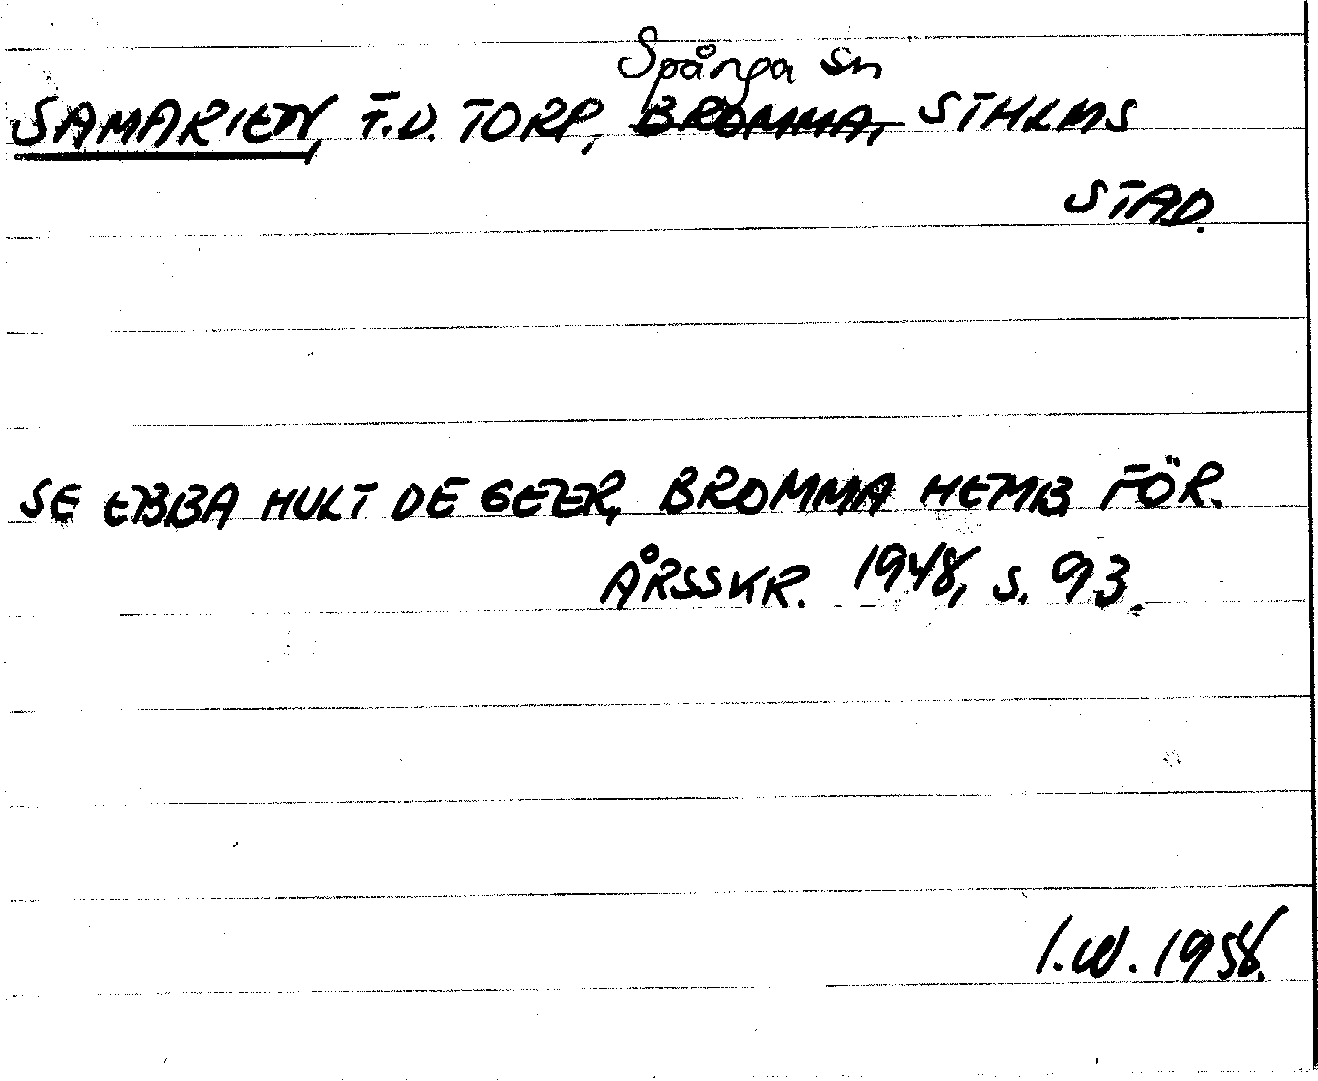 Spånga sn
SAMARIEN, F.D. TORP, BROMMA, STHLMS
STAD.
SE EBBA HULT DE GEER, BROMMA HEMB FÖR.
ÅRSSKR. 1948, S. 93.
I.W. 1958.